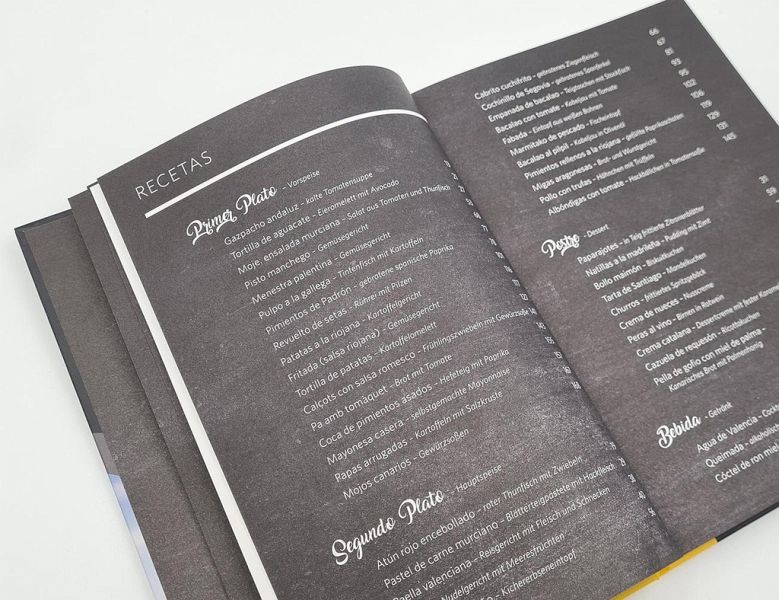 RECETAS
Primer Plato - Vorspeise
Gazpacho andaluz - kalte Tomatensuppe
Tortilla de aguacate - Eieromelett mit Avocado
Moje: ensalada murciana - Salat aus Tomaten und Thunfisch
Pisto manchego - Gemüsegericht
Menestra palentina - Gemüsegericht
Pulpo a la gallega - Tintenfisch mit Kartoffeln
Pimientos de Padrón - gebratene spanische Paprika
Revuelto de setas - Rührei mit Pilzen
Patatas a la riojana - Kartoffelgericht
Fritada (salsa riojana) - Gemüsegericht
Tortilla de patatas - Kartoffelomelett
Calçots con salsa romesco - Frühlingszwiebeln mit Gewürzsoße
Pa amb tomàquet - Brot mit Tomate
Coca de pimientos asados - Hefeteig mit Paprika
Mayonesa casera - selbstgemachte Mayonnaise
Papas arrugadas - Kartoffeln mit Salzkruste
Mojos canarios - Gewürzsoßen
Segundo Plato - Hauptspeise
Atún rojo encebollado - roter Thunfisch mit Zwiebeln
Pastel de carne murciano - Blätterteigpastete mit Hackfleisch
Paella valenciana - Reisgericht mit Fleisch und Schnecken
Nudelgericht mit Meeresfrüchten
- Kichererbseneintopf
Cabrito cuchifrito - gebratenes Ziegenfleisch 66
Cochinillo de Segovia - gebratenes Spanferkel 67
Empanada de bacalao - Teigtaschen mit Stockfisch 81
Bacalao con tomate - Kabeljau mit Tomate 93
Fabada - Eintopf aus weißen Bohnen 95
Marmitako de pescado - Fischeintopf 102
Bacalao al pilpil - Kabeljau in Olivenöl 106
Pimientos rellenos a la riojana - gefüllte Paprikaschoten 119
Migas aragonesas - Brot- und Wurstgericht 129
Pollo con trufas - Hähnchen mit Trüffeln 131
Albóndigas con tomate - Hackbällchen in Tomatensoße 145
Postre - Dessert
Paparajotes - in Teig frittierte Zitronenblätter 31
Natillas a la madrileña - Pudding mit Zimt
Bollo maimón - Biskuitkuchen
Tarta de Santiago - Mandelkuchen
Churros - frittiertes Spritzgebäck
Crema de nueces - Nusscreme
Peras al vino - Birnen in Rotwein
Crema catalana - Dessertcreme mit fester
Cazuela de requesón - Ricottakuchen
Pella de gofio con miel de palma -
Kanarisches Brot mit Palmenhonig
Bebida - Getränk
Agua de Valencia -
Queimada -
Cóctel de ron